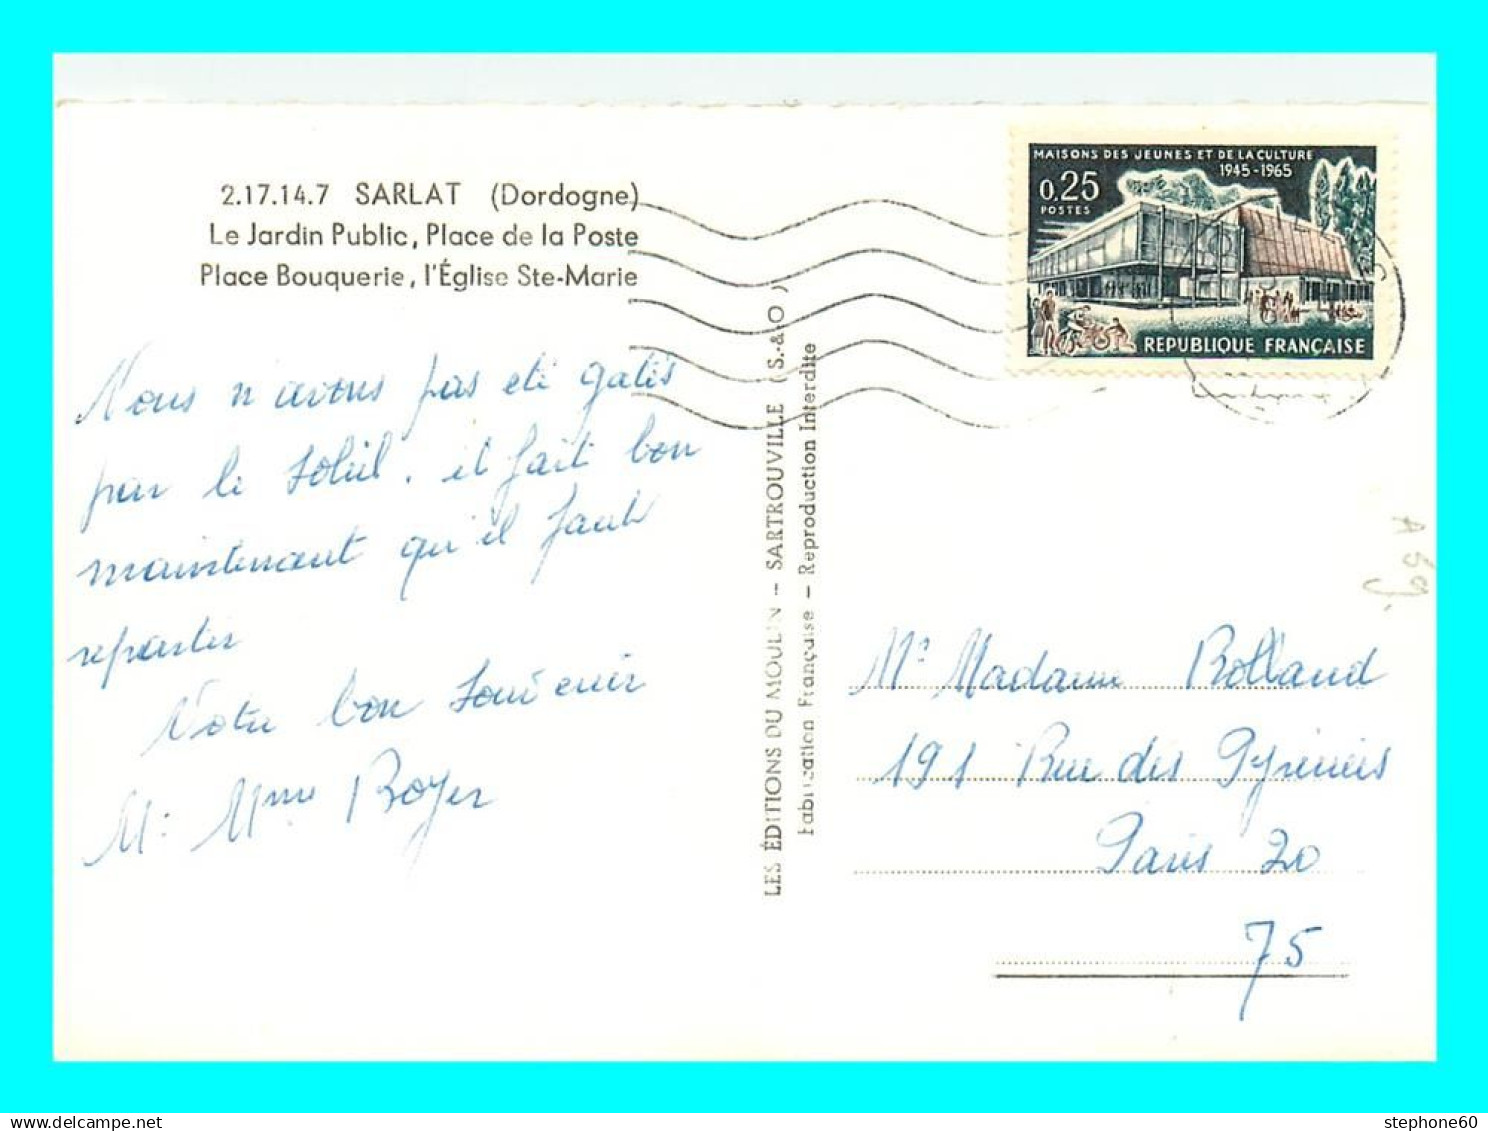 2.17.14.7 SARLAT (Dordogne)
Le Jardin Public, Place de la Poste
Place Bouquerie, l'Église Ste-Marie
Nous n'avons pas eté gatés
par le soleil. il fait bon
maintenant qu'il faut
repartir
Notre bon souvenir
M. Mme Boyer
LES ÉDITIONS DU MOULIN - SARTROUVILLE (S.-&-O)
Fabrication Française - Reproduction Interdite
MAISONS DES JEUNES ET DE LA CULTURE
1945-1965
0,25
POSTES
REPUBLIQUE FRANÇAISE
A 59
Mr Madame Rolland
191 Rue des Pyrénées
Paris 20
75
stephone60